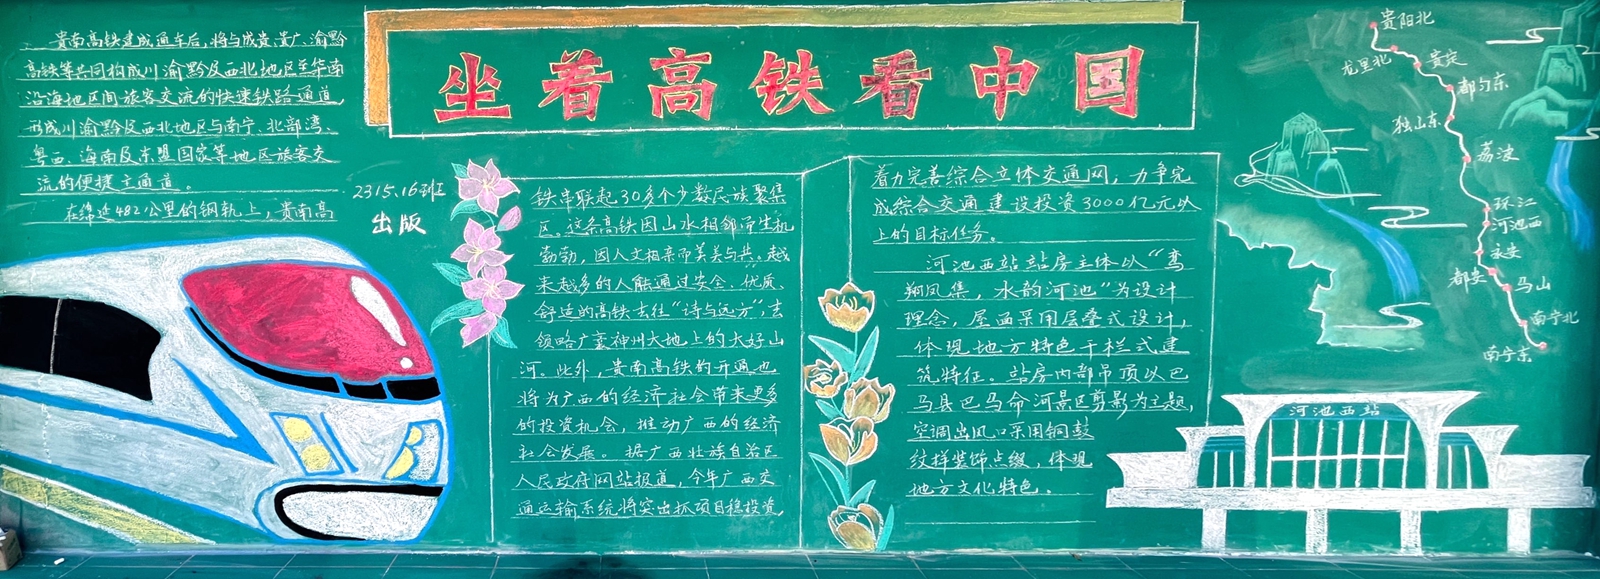 坐着高铁看中国
贵南高铁建成通车后,将与成贵、贵广、渝黔
高铁等共同构成川渝黔及西北地区至华南
沿海地区间旅客交流的快速铁路通道,
形成川渝黔及西北地区与南宁、北部湾、
粤西、海南及东盟国家等地区旅客交
流的便捷主通道。
在绵延482公里的钢轨上,贵南高
2315.16班
出版
铁串联起30多个少数民族聚集
区。这条高铁因山水相邻而生机
勃勃,因人文相亲而美美与共。越
来越多的人能通过安全、优质、
舒适的高铁去往“诗与远方”,去
领略广袤神州大地上的大好山
河。此外,贵南高铁的开通也
将为广西的经济社会带来更多
的投资机会,推动广西的经济
社会发展。据广西壮族自治区
人民政府网站报道,今年广西交
通运输系统将突出抓项目稳投资,
着力完善综合立体交通网,力争完
成综合交通建设投资3000亿元以
上的目标任务。
河池西站站房主体以“鸾
翔凤集,水韵河池”为设计
理念,屋面采用层叠式设计,
体现地方特色干栏式建
筑特征。站房内部吊顶以巴
马县巴马命河景区剪影为主题,
空调出风口采用铜鼓
纹样装饰点缀,体现
地方文化特色。
贵阳北
龙里北
贵定
都匀东
独山东
荔波
环江
河池西
永安
都安
马山
南宁北
南宁东
河池西站